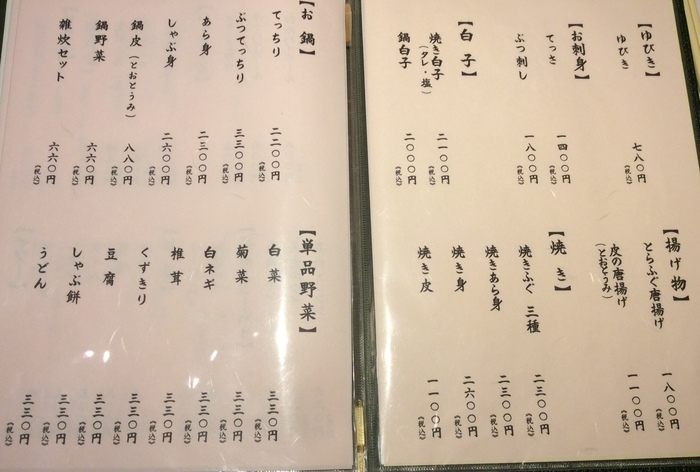 【ゆびき】
ゆびき 七八〇円(税込)
【お刺身】
てっさ 一四〇〇円(税込)
ぶつ刺し 一八〇〇円(税込)
【白子】
焼き白子(タレ・塩) 二一〇〇円(税込)
鍋白子 二〇〇〇円(税込)
【揚げ物】
とらふぐ唐揚げ 一八〇〇円(税込)
皮の唐揚げ(とおとうみ) 一一〇〇円(税込)
【焼き】
焼きふぐ 三種 二三〇〇円(税込)
焼きあら身 二三〇〇円(税込)
焼き身 二六〇〇円(税込)
焼き皮 一一〇〇円(税込)
【お鍋】
てっちり 二二〇〇円(税込)
ぶつてっちり 三三〇〇円(税込)
あら身 二三〇〇円(税込)
しゃぶ身 二六〇〇円(税込)
鍋皮(とおとうみ) 八八〇円(税込)
鍋野菜 六六〇円(税込)
雑炊セット 六六〇円(税込)
【単品野菜】
白菜 三三〇円(税込)
菊菜 三三〇円(税込)
白ネギ 三三〇円(税込)
椎茸 三三〇円(税込)
くずきり 三三〇円(税込)
豆腐 三三〇円(税込)
しゃぶ餅 三三〇円(税込)
うどん 三三〇円(税込)